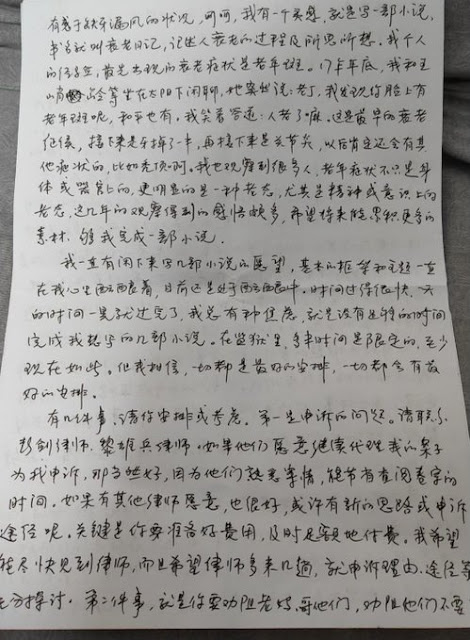 有感于缺牙漏风的状况，呵呵，我有一个灵感，就是写一部小说，
书名就叫衰老日记，记述人衰老的过程及所思所想。我个
人的经历是，首先出现的衰老症状是老年斑。17年年底，我和王
等坐在太阳下闲聊，她突然说：老了，我发现你脸上有
老年斑呢，和平也有。我笑着答道：人老了嘛。这是最早的衰老
征候，接下来是牙掉了一半，再接下来是关节炎，以后肯定还会有其
他症状的，比如秃顶啊。我也观察到很多人，老年症状不只是身
体或器官上的，更明显的是一种老态，尤其是精神或意识上的
老态，这几年的观察得到的感悟颇多，希望将来能累积更多的
素材，够我完成一部小说。
我一直有闲下来写几部小说的愿望，基本的框架和主题一直
在我心里酝酿着，目前还是处于酝酿中。时间过得很快，一天
的时间一晃就过完了，我总有种焦虑，就是没有足够的时间
完成我想写的几部小说。在监狱里，多半时间是限定的，至少
现在如此。但我相信，一切都是最好的安排，一切都会有最
好的安排。
有几件事，请你安排或考虑。第一是申诉的问题。请联系
彭剑律师、黎雄兵律师。如果他们愿意继续代理我的案子
为我申诉，那当然好，因为他们熟悉案情，能节省查阅卷宗的
时间。如果有其他律师愿意，也很好，或许有新的思路或申诉
途径呢。关键是你要准备好费用，及时足额地付费。我希望
能尽快见到律师，而且希望律师多来几趟，就申诉理由、途径等
充分探讨。第二件事，就是你要劝阻老妈、哥他们，劝阻他们不要